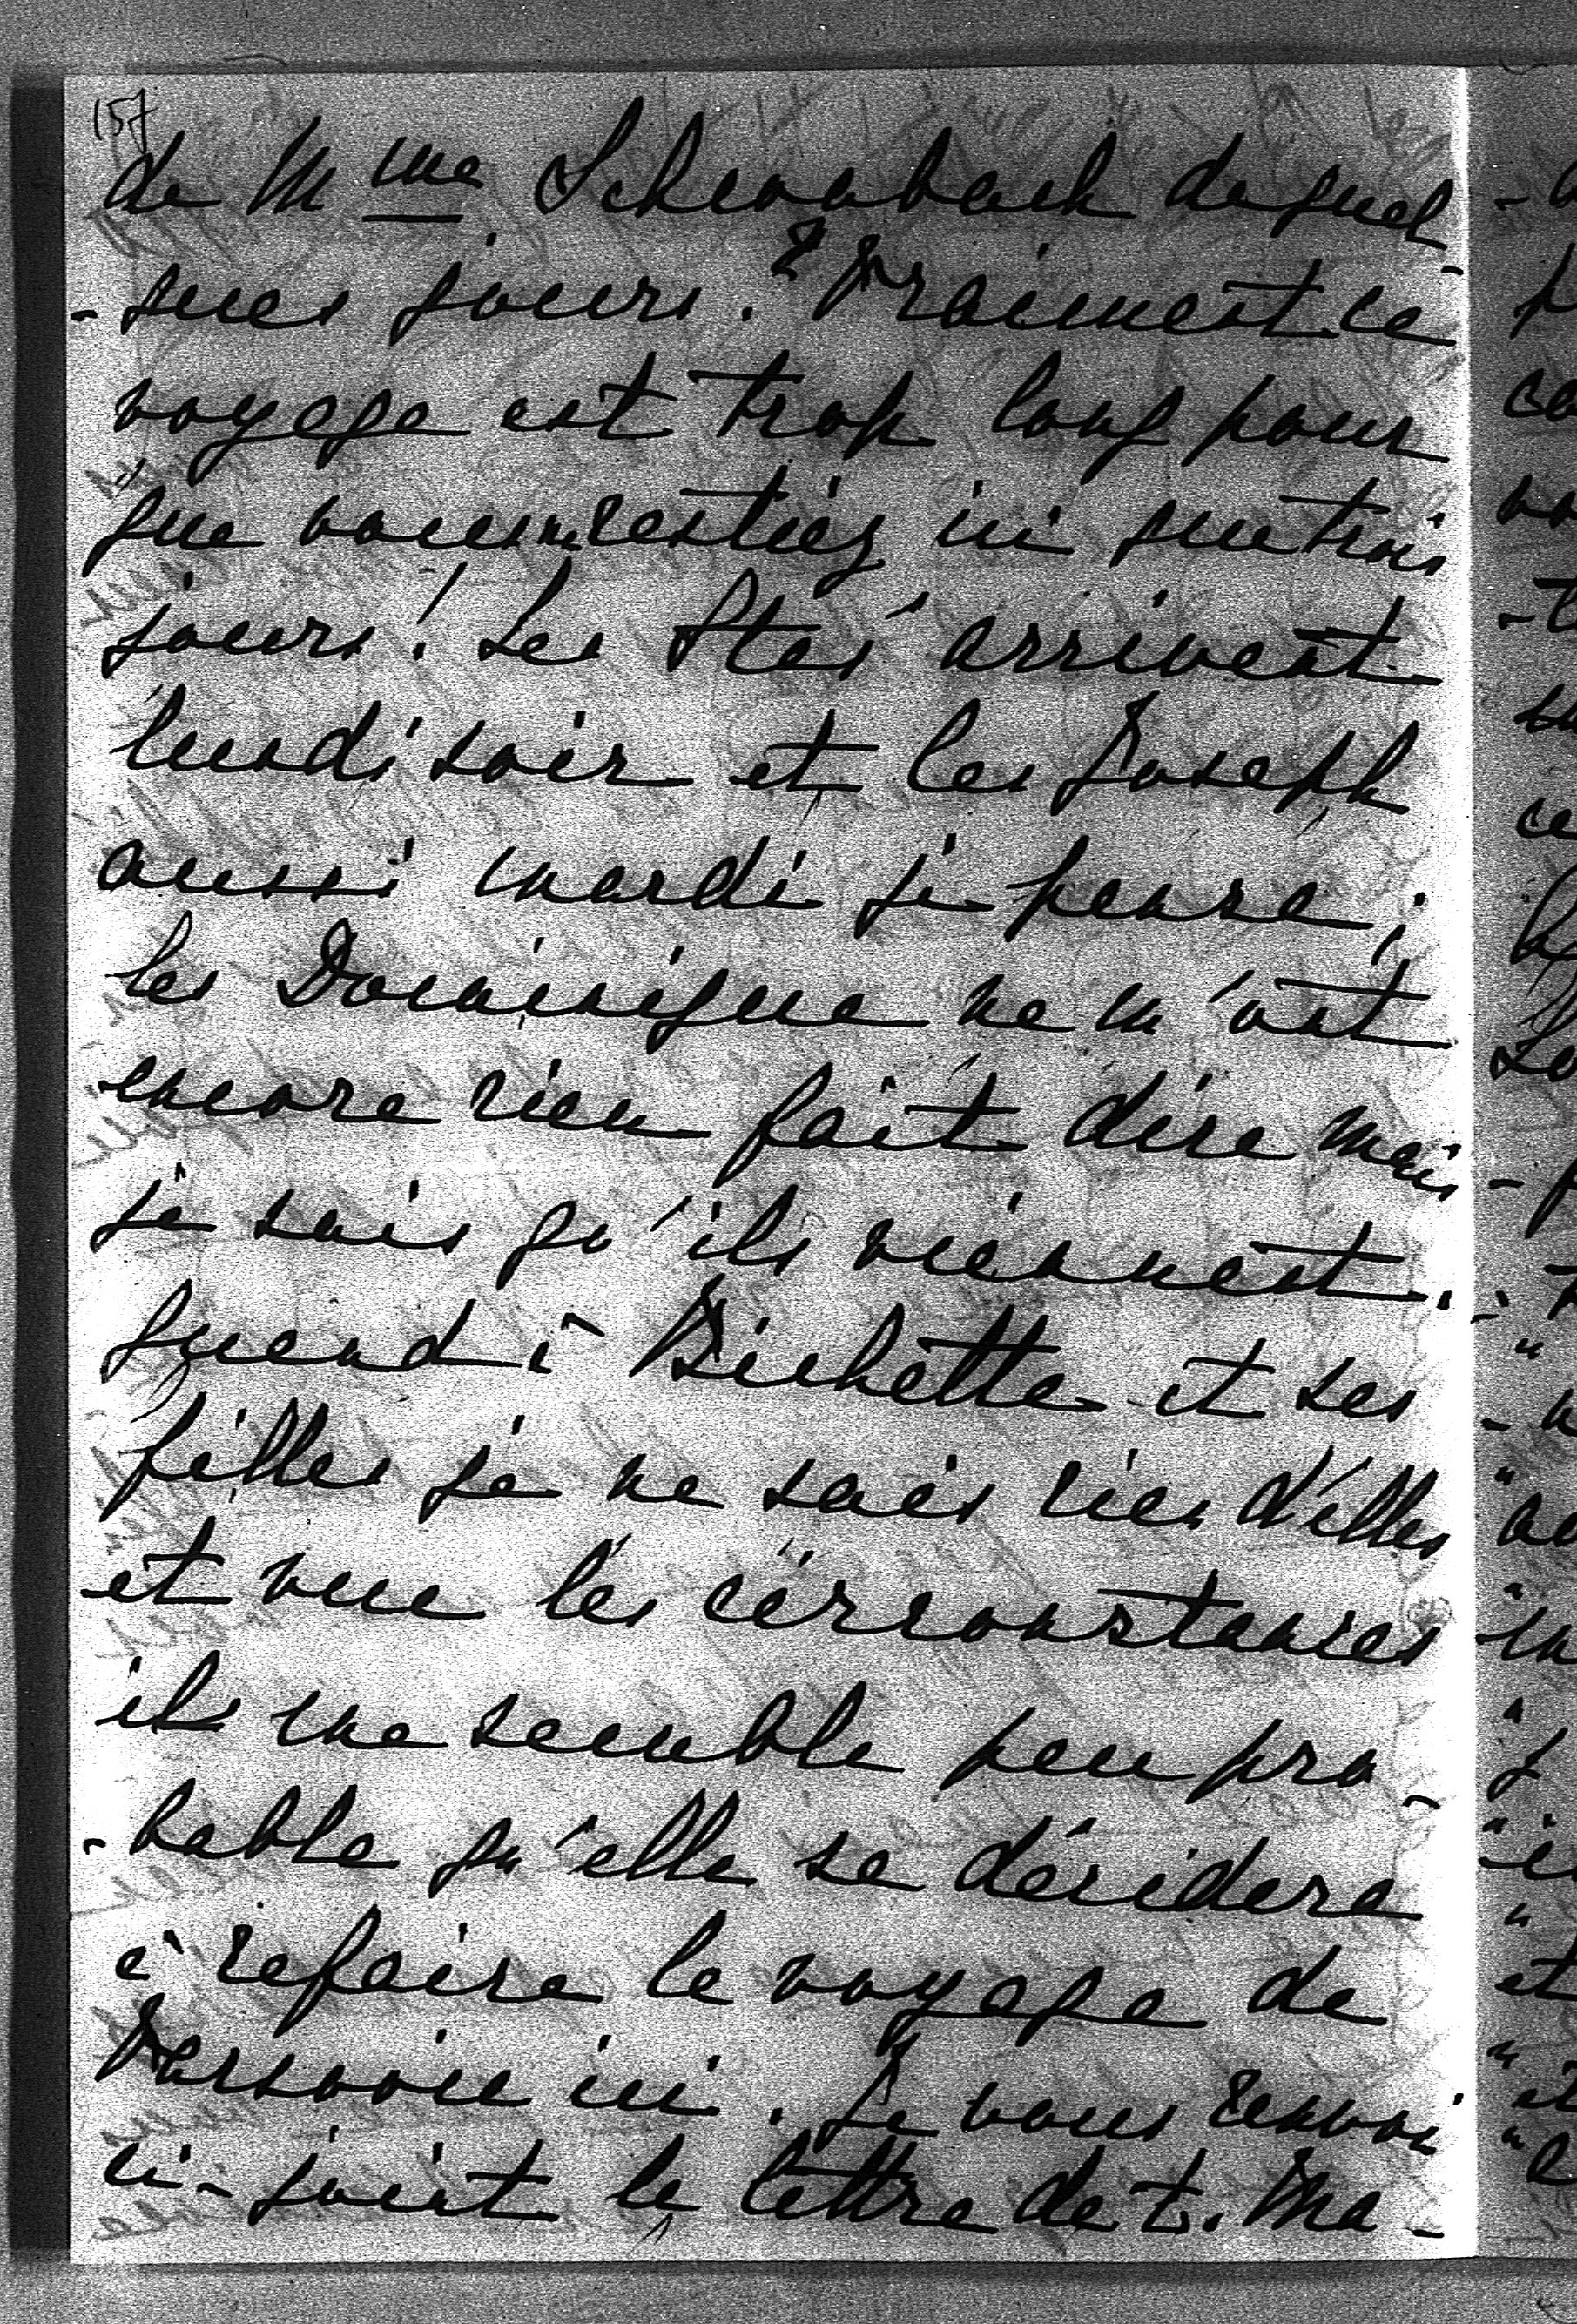 157
de Mme Schevabach de quel-
-ques jours. Vraiment ce
voyage est trop long pour
que vous ne restiez ici que trois
jours! Les Stas' arrivent
lundi soir et les Joseph
aussi mardi je pense;
les Dominique ne m'ont
encore rien fait dire mais
je sais qu'ils viennent.
quand à Bichette et ses
filles je ne sais rien d'elles
et vue les circonstances
il me semble peu pro-
-bable qu'elle se décidera
à refaire le voyage de
Varsovie ici. Je vous renvoi
ci-joint la lettre de t. Ma-